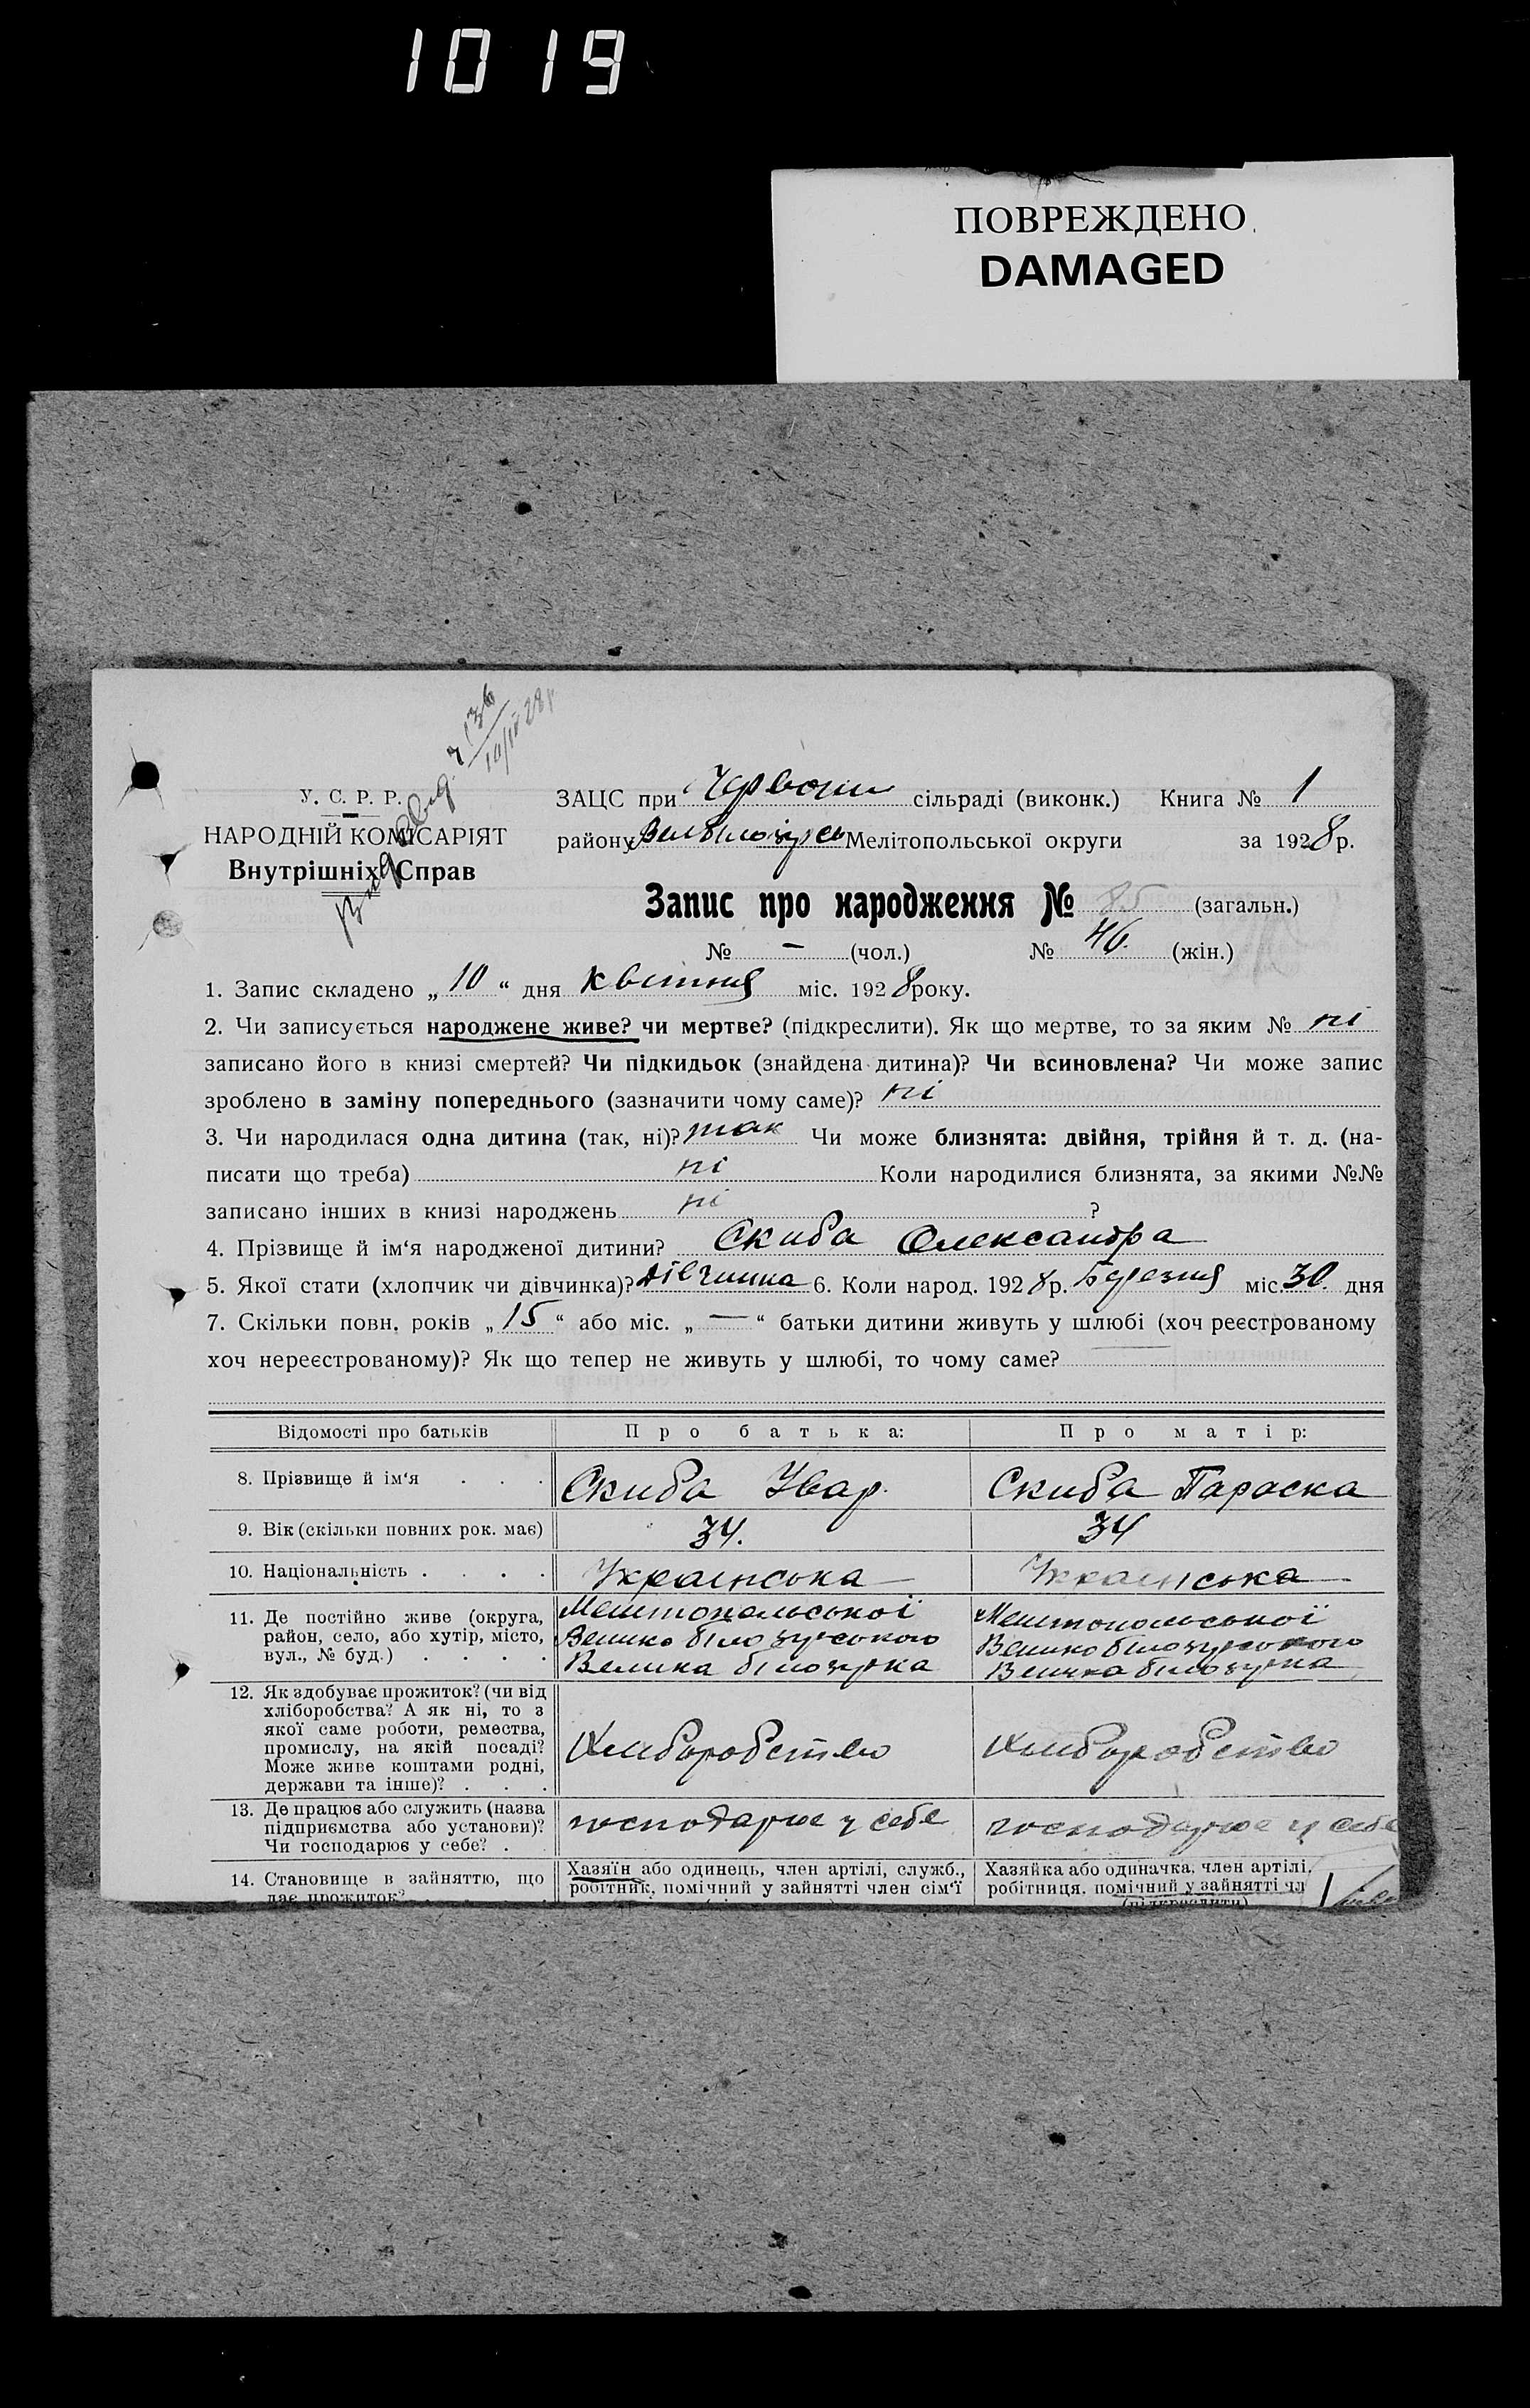 1019
ПОВРЕЖДЕНО
DAMAGED
136
10/IV 28р
У. С. Р. Р.
НАРОДНІЙ КОМІСАРІЯТ
Внутрішніх Справ
ЗАЦС при Червоній сільраді (виконк.) Книга № 1
району Вел Білозірсь Мелітопольської округи за 1928 р.
Запис про народження № 85 (загальн.)
№ — (чол.) № 46. (жін.)
1. Запис складено „10“ дня квітня міс. 1928 року.
2. Чи записується народжене живе? чи мертве? (підкреслити). Як що мертве, то за яким № ні
записано його в книзі смертей? Чи підкидьок (знайдена дитина)? Чи всиновлена? Чи може запис
зроблено в заміну попереднього (зазначити чому саме)? ні
3. Чи народилася одна дитина (так, ні)? так Чи може близнята: двійня, трійня й т. д. (на-
писати що треба) ні Коли народилися близнята, за якими №№
записано інших в книзі народжень ні ?
4. Прізвище й ім‘я народженої дитини? Скиба Олександра
5. Якої стати (хлопчик чи дівчинка)? дівчинка 6. Коли народ. 1928 р. березня міс. 30. дня
7. Скільки повн. років „15“ або міс. „—“ батьки дитини живуть у шлюбі (хоч реєстрованому
хоч нереєстрованому)? Як що тепер не живуть у шлюбі, то чому саме? —
Відомості про батьків Про батька: Про матір:
8. Прізвище й ім‘я . . . Скиба Увар. Скиба Параска
9. Вік (скільки повних рок. має) 34. 34
10. Національність . . . . Українська Українська
11. Де постійно живе (округа,
район, село, або хутір, місто,
вул., № буд.) . . . .
Мелітопольської
Велико білозірського
Велика білозірка
Мелітопольської
Велико білозірського
Велика білозірка
12. Як здобуває прожиток? (чи від
хліборобства? А як ні, то з
якої саме роботи, ремества,
промислу, на якій посаді?
Може живе коштами родні,
держави та інше)? . . .
Хліборобство
Хліборобство
13. Де працює або служить (назва
підприємства або установи)?
Чи господарює у себе? .
господарює у себе
господарює у себе
14. Становище в зайняттю, що
дає прожиток?
Хазяїн або одинець, член артілі, служб.,
робітник, помічний у зайнятті член сім‘ї
Хазяйка або одиначка, член артілі,
робітниця, помічний у зайнятті чл
(підкреслити)